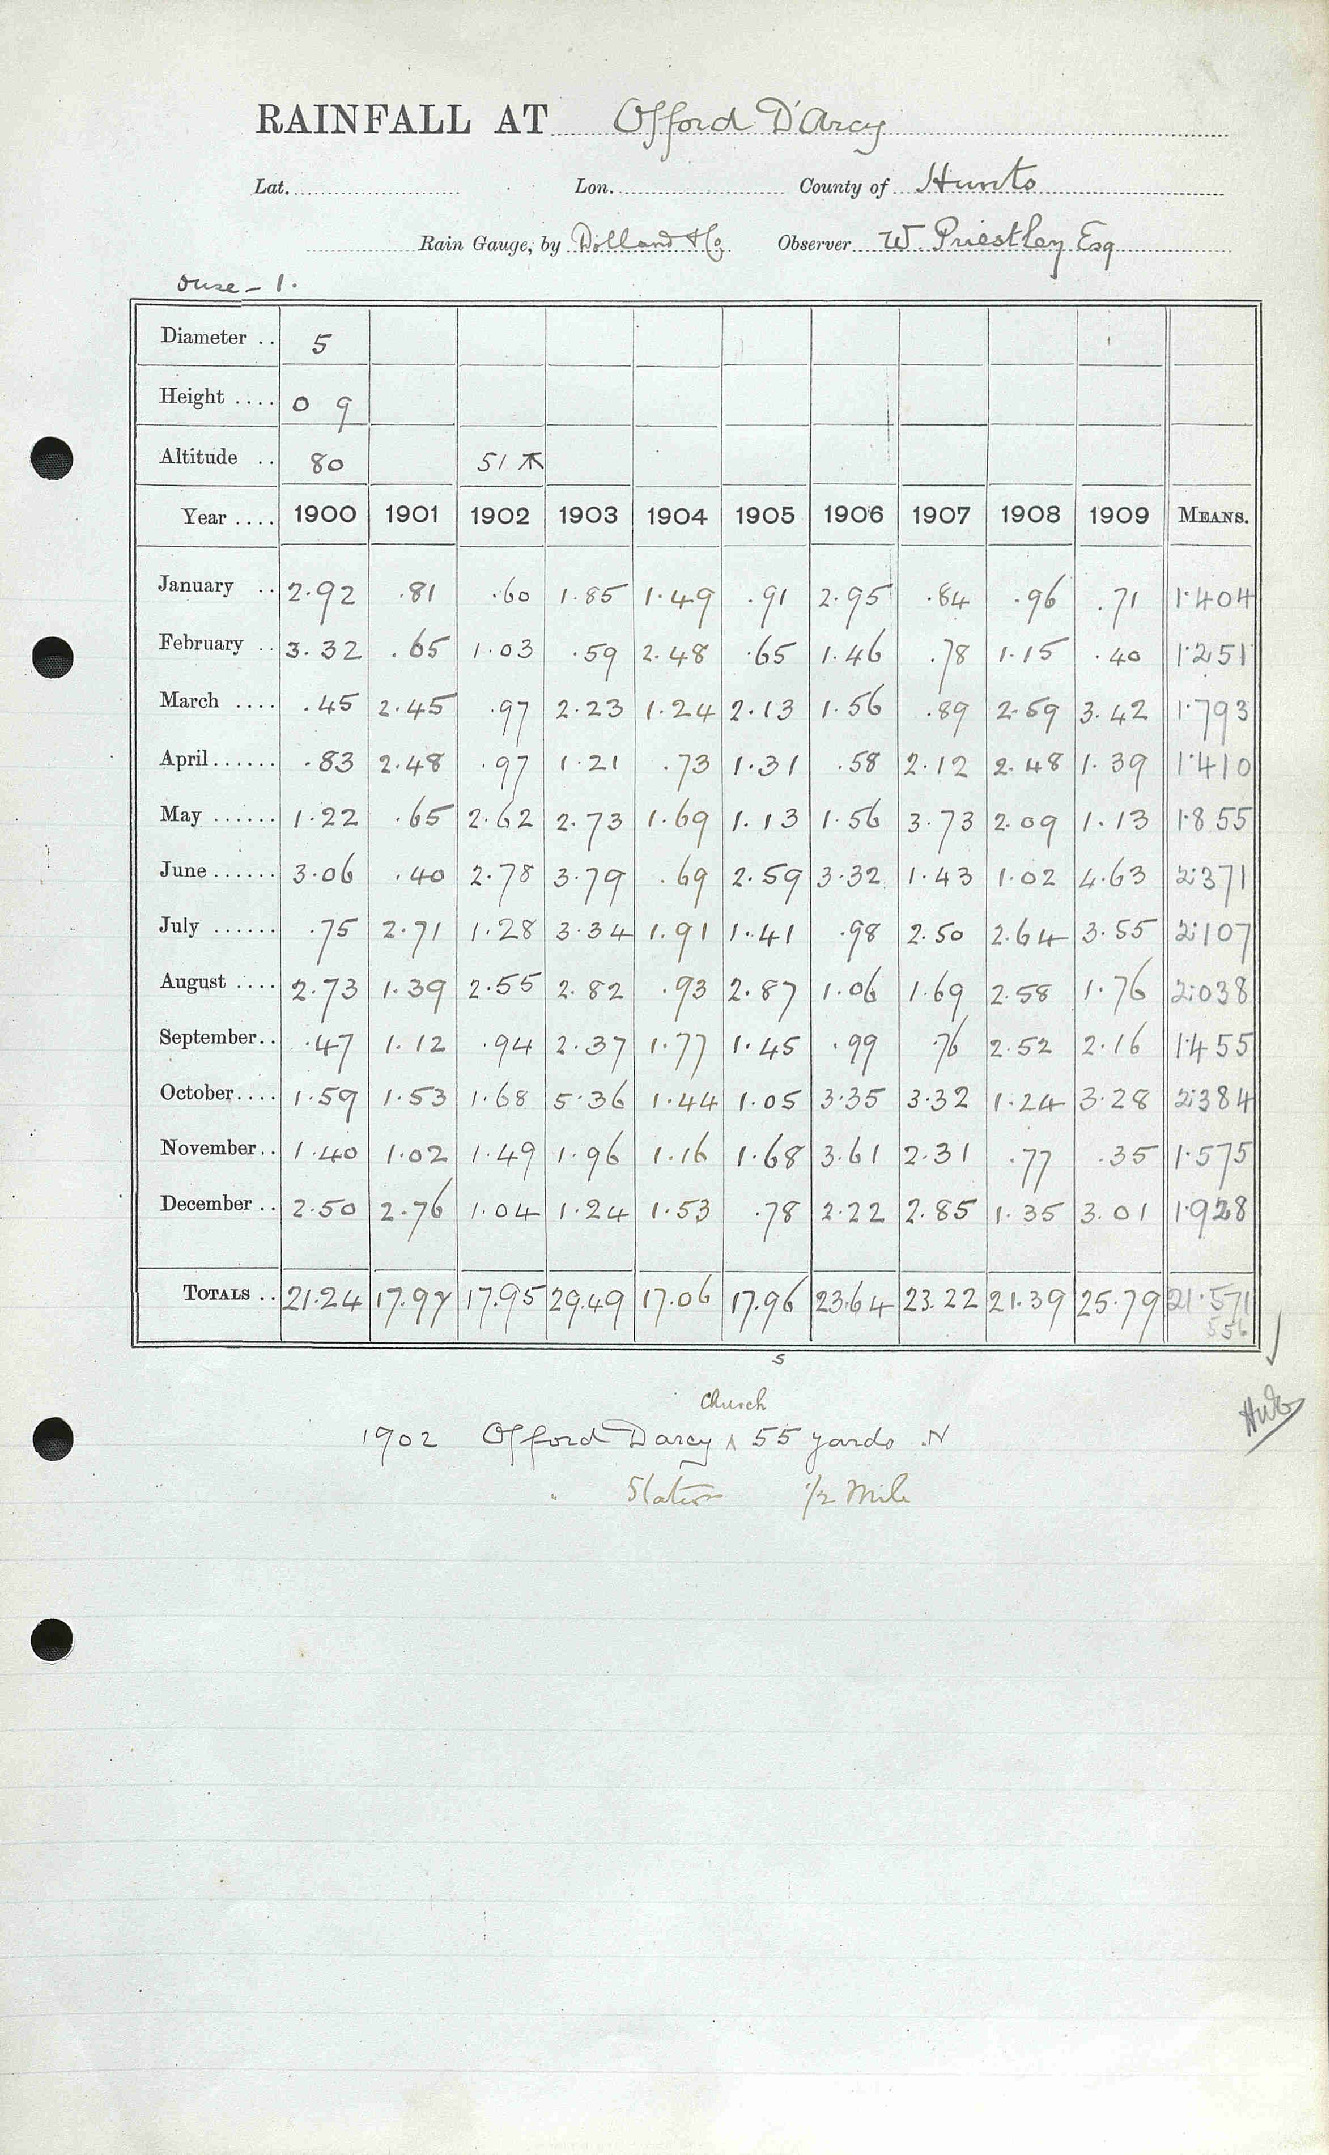 RAINFALL AT Offord D'Arcy
Lat. Lon. County of Hunts
Rain Gauge, by Dolland & Co Observer W Priestley Esq
Ouse - 1.
Diameter .. 5
Height .... 0 9
Altitude .. 80 51
Year .... 1900 1901 1902 1903 1904 1905 1906 1907 1908 1909 MEANS.
January .. 2.92 .81 .60 1.85 1.49 .91 2.95 .84 .96 .71 1.404
February .. 3.32 .65 1.03 .59 2.48 .65 1.46 .78 1.15 .40 1.251
March .... .45 2.45 .97 2.23 1.24 2.13 1.56 .89 2.59 3.42 1.793
April...... .83 2.48 .97 1.21 .73 1.31 .58 2.12 2.48 1.39 1.410
May ...... 1.22 .65 2.62 2.73 1.69 1.13 1.56 3.73 2.09 1.13 1.855
June...... 3.06 .40 2.78 3.79 .69 2.59 3.32 1.43 1.02 4.63 2.371
July ...... .75 2.71 1.28 3.34 1.91 1.41 .98 2.50 2.64 3.55 2.107
August .... 2.73 1.39 2.55 2.82 .93 2.87 1.06 1.69 2.58 1.76 2.038
September.. .47 1.12 .94 2.37 1.77 1.45 .99 .76 2.52 2.16 1.455
October.... 1.59 1.53 1.68 5.36 1.44 1.05 3.35 3.32 1.24 3.28 2.384
November.. 1.40 1.02 1.49 1.96 1.16 1.68 3.61 2.31 .77 .35 1.575
December .. 2.50 2.76 1.04 1.24 1.53 .78 2.22 2.85 1.35 3.01 1.928
TOTALS .. 21.24 17.97 17.95 29.49 17.06 17.96 23.64 23.22 21.39 25.79 21.571
556
5
Church
1902 Offord Darcy ^ 55 yards N
" Station 1/2 Mile